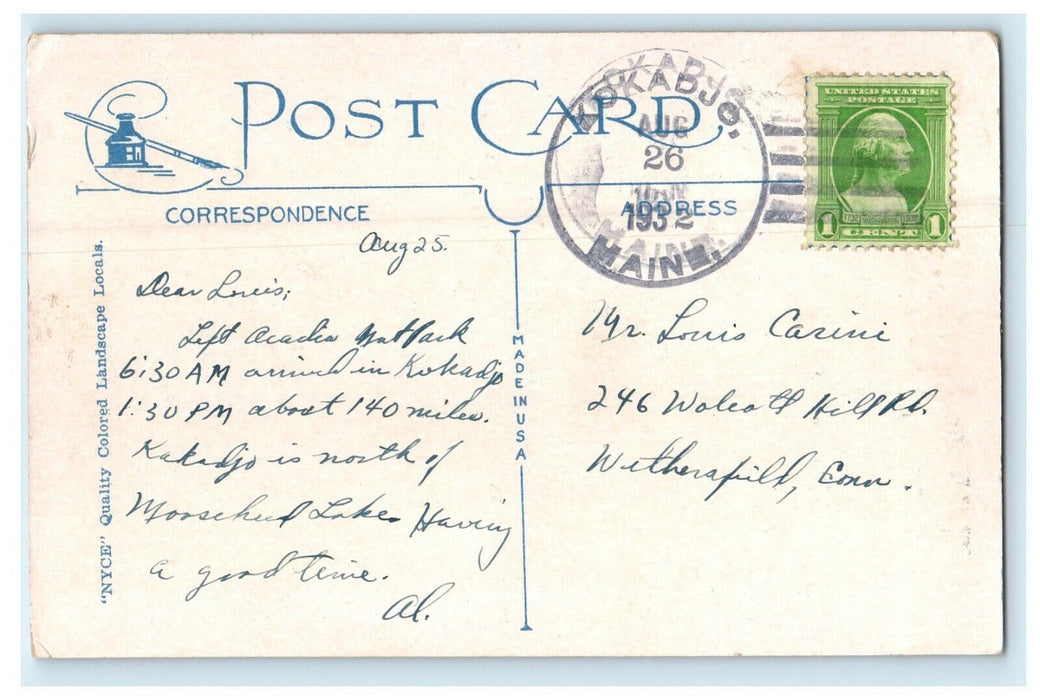 POST CARD
CORRESPONDENCE
ADDRESS
KOKADJO,
AUG
26
1932
MAINE.
UNITED STATES
POSTAGE
1732 WASHINGTON 1932
1 CENT 1
Aug 25.
Dear Louis;
Left Acadia Nat Park
6:30 AM arrived in Kokadjo
1:30 PM about 140 miles.
Kokadjo is north of
Moosehead Lake. Having
a good time.
Al.
"NYCE" Quality Colored Landscape Locals.
MADE IN USA
Mr. Louis Carini
246 Wolcott Hill Rd.
Wethersfield, Conn.